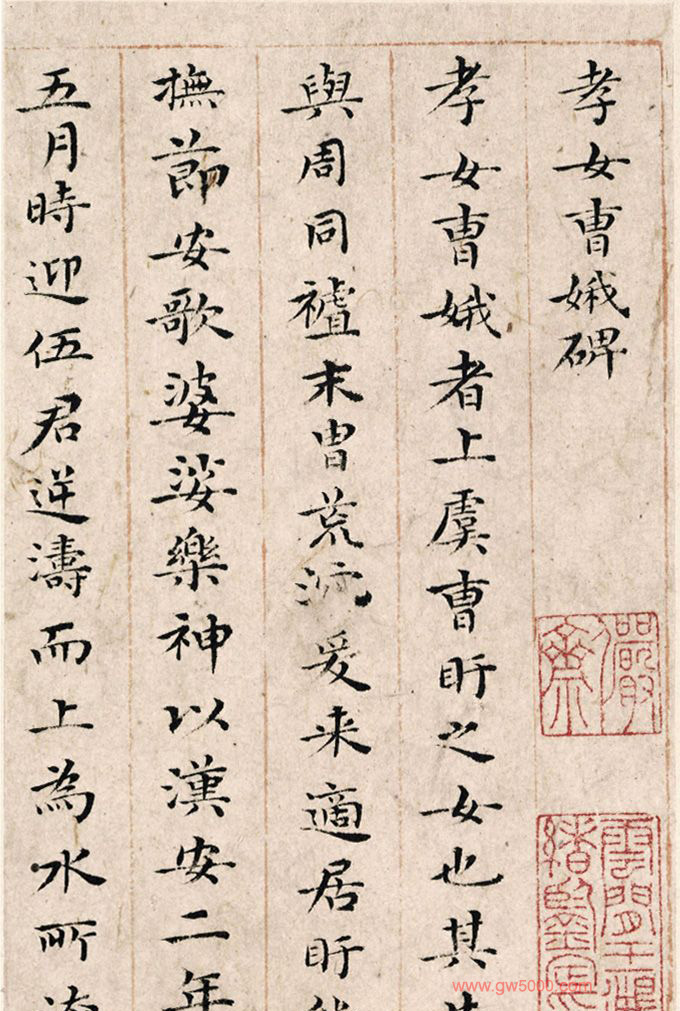 孝女曺娥碑
孝女曺娥者上虞曺盱之女也其
與周同末胄荒沉爰来適居盱
撫節安歌婆娑樂神以漢安二年
五月時迎伍君逆濤而上為水所
儼齋
雲間王鴻
緒鑒定
www.gw5000.com